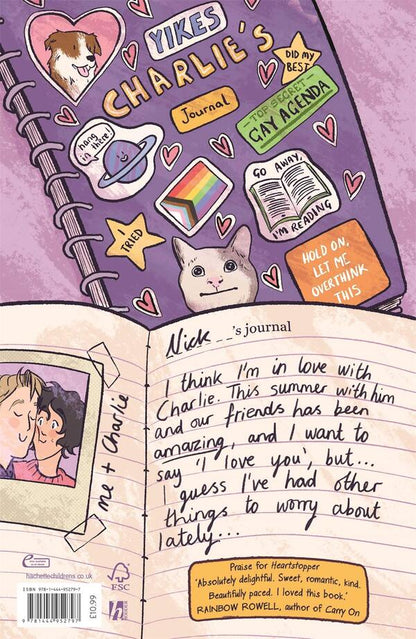 YIKES
DID MY
BEST
CHARLIE'S
Journal
TOP SECRET
GAY AGENDA
hang
in
there!
GO AWAY,
I'M READING
I
TRIED
HOLD ON,
LET ME
OVERTHINK
THIS
Nick _ _ 's journal
I think I'm in love with
Charlie. This summer with him
and our friends has been
amazing, and I want to
say 'I love you', but...
I guess I've had other
things to worry about
lately...
me + Charlie
hachettechildrens.co.uk
ISBN 978-1-444-95279-7
9 781444 952797
£10.99
FSC
h
Praise for Heartstopper
'Absolutely delightful. Sweet, romantic, kind.
Beautifully paced. I loved this book.'
RAINBOW ROWELL, author of Carry On